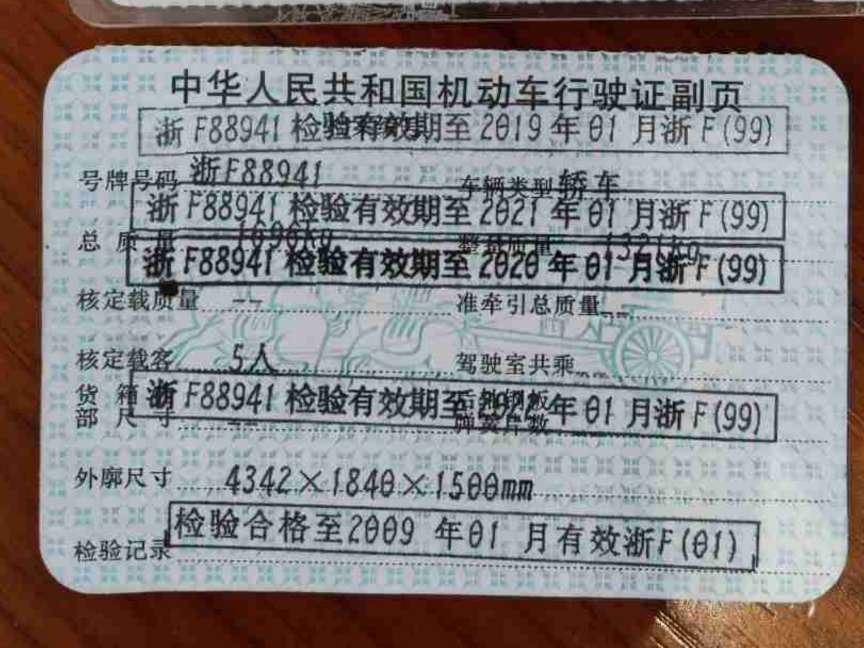 中华人民共和国机动车行驶证副页
浙 F88941 检验有效期至 2019 年 01 月浙 F(99)
号牌号码 浙F88941 车辆类型 轿车
浙 F88941 检验有效期至 2021 年 01 月浙 F(99)
总质量 1696kg 整备质量 1321kg
浙 F88941 检验有效期至 2020 年 01 月浙 F(99)
核定载质量 -- 准牵引总质量 --
核定载客 5人 驾驶室共乘
货箱内部尺寸 -- 后轴钢板弹簧片数
浙 F88941 检验有效期至 2022 年 01 月浙 F(99)
外廓尺寸 4342×1840×1500mm
检验记录 检验合格至2009 年01 月有效浙F(01)